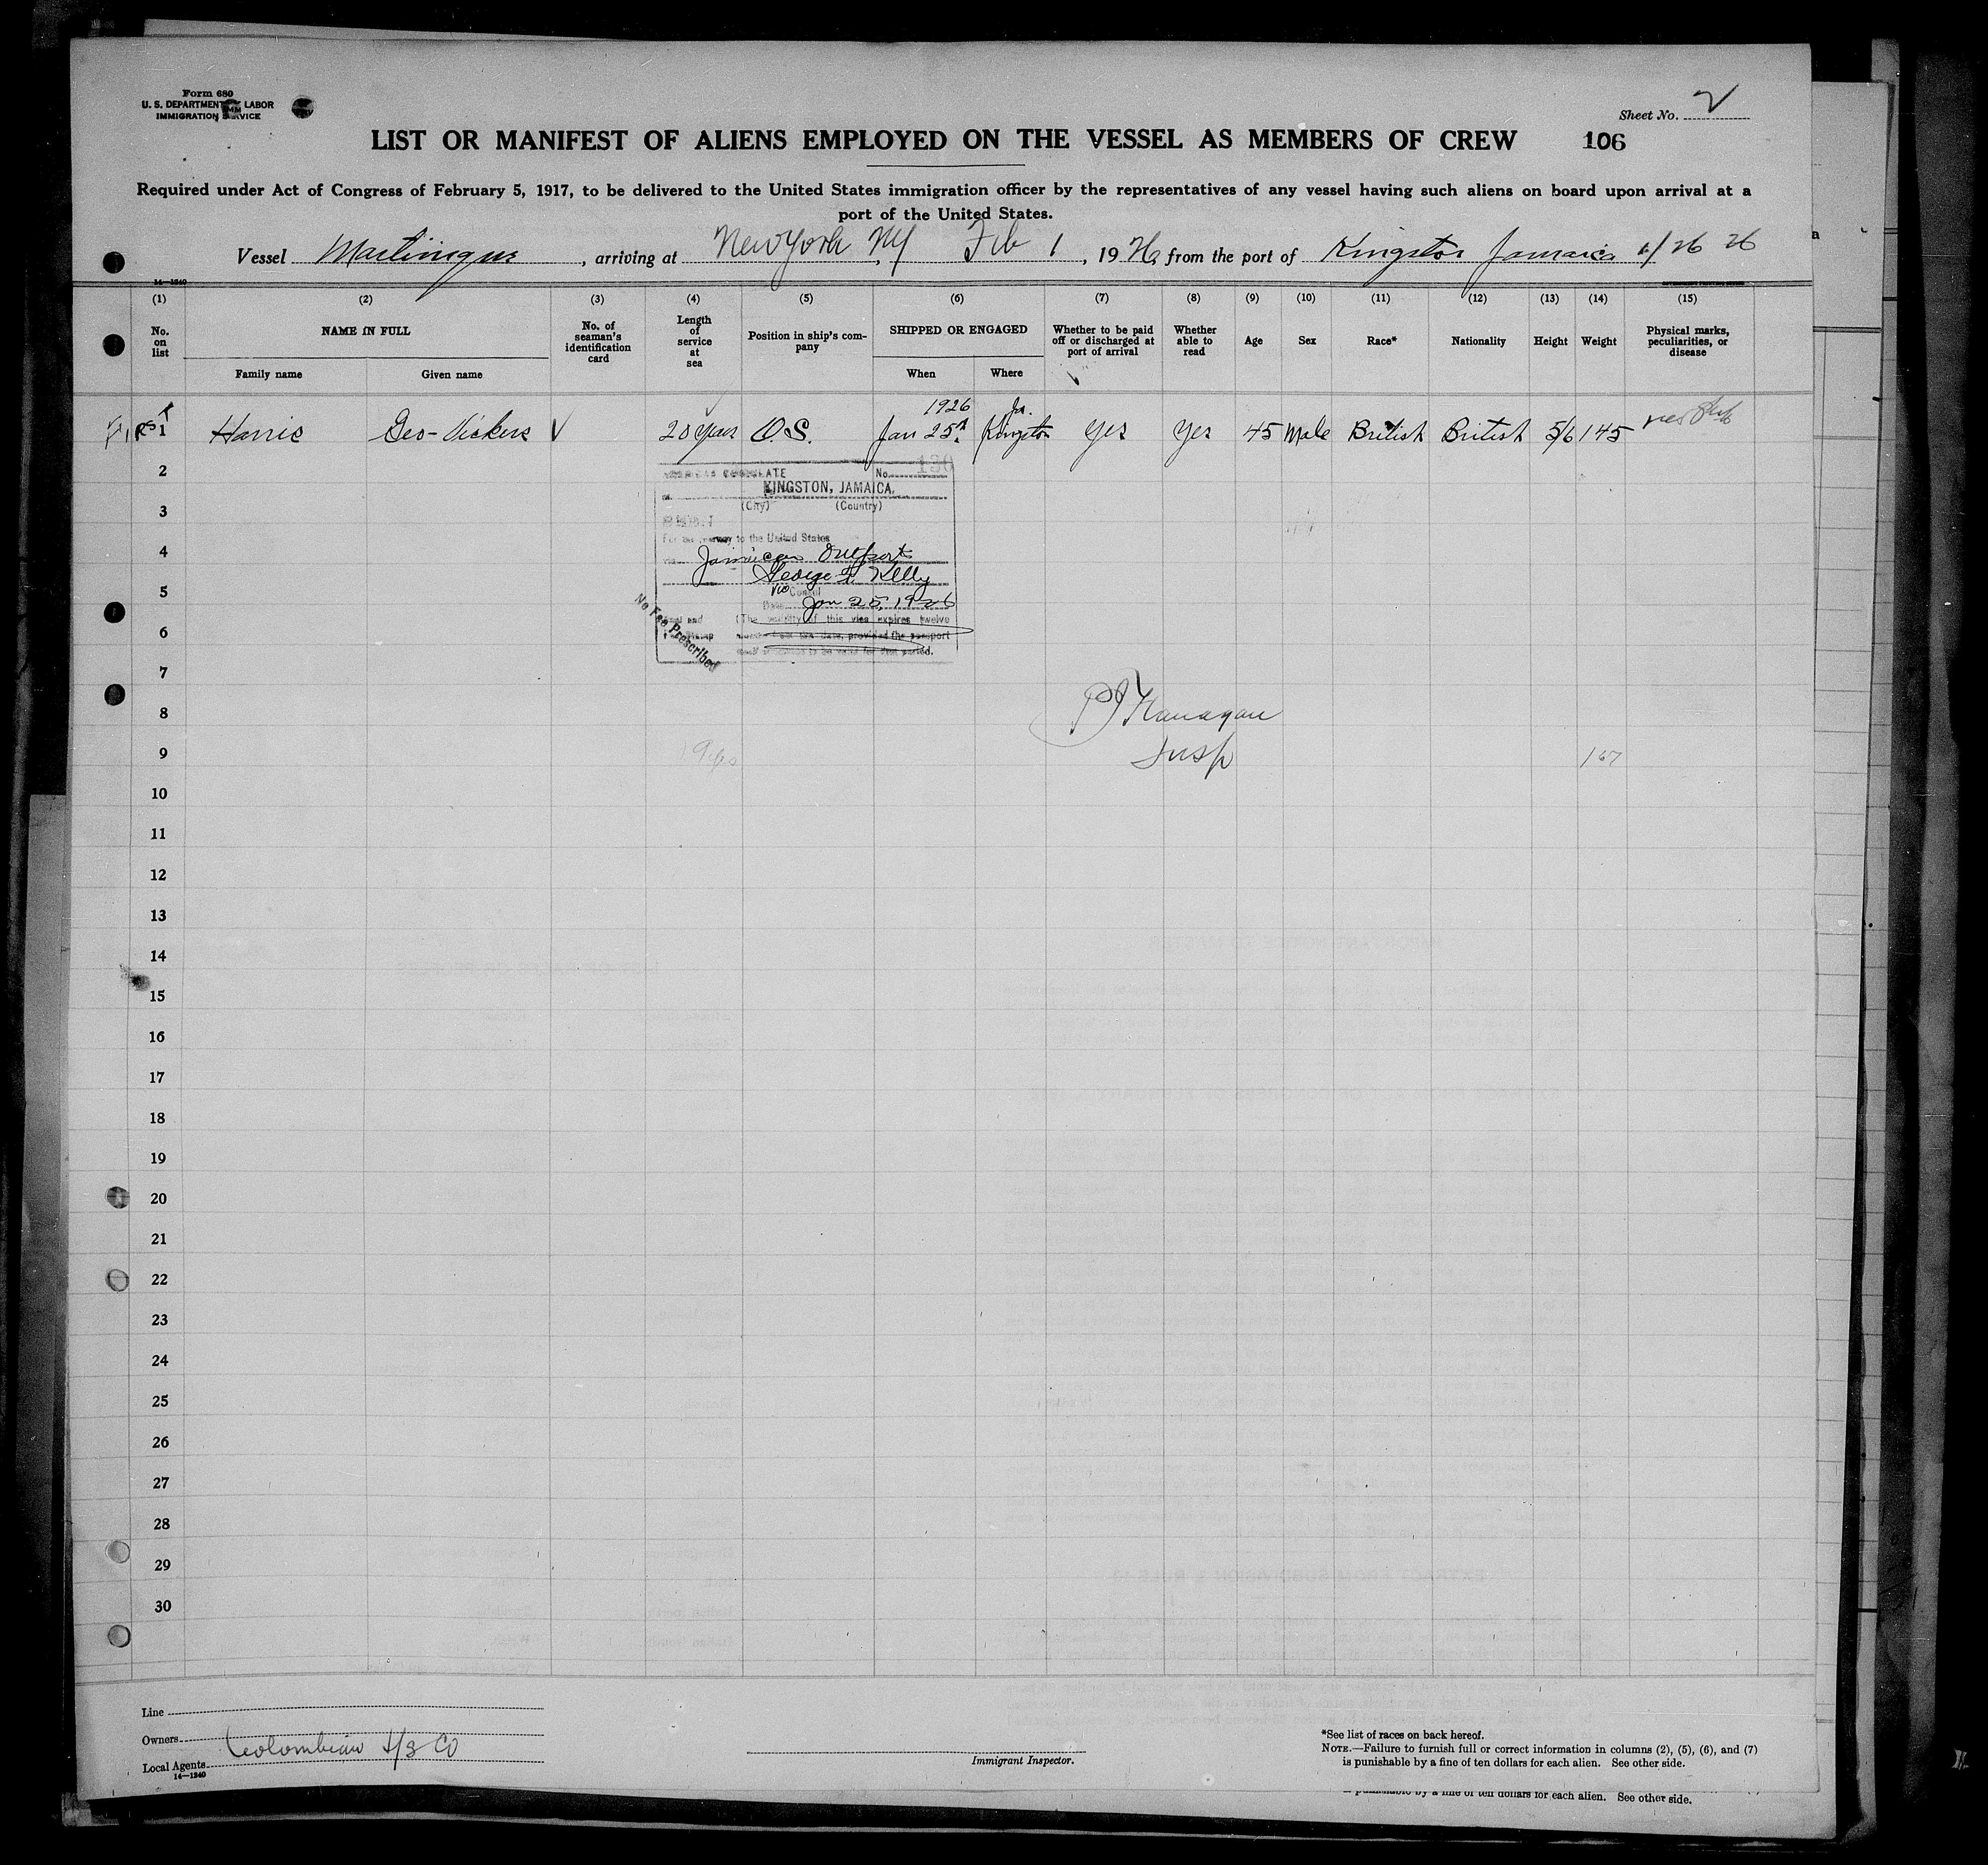 Form 680
U. S. DEPARTMENT LABOR
IMMIGRATION SERVICE
Sheet No. 2
LIST OR MANIFEST OF ALIENS EMPLOYED ON THE VESSEL AS MEMBERS OF CREW 106
Required under Act of Congress of February 5, 1917, to be delivered to the United States immigration officer by the representatives of any vessel having such aliens on board upon arrival at a
port of the United States.
Vessel Martinique, arriving at New York, NY Feb 1, 1926, from the port of Kingston Jamaica 1/26 26
14—1240
(1) (2) (3) (4) (5) (6) (7) (8) (9) (10) (11) (12) (13) (14) (15)
No. on list
NAME IN FULL
Family name Given name
No. of seaman's identification card
Length of service at sea
Position in ship's company
SHIPPED OR ENGAGED
When Where
Whether to be paid off or discharged at port of arrival
Whether able to read
Age
Sex
Race*
Nationality
Height
Weight
Physical marks, peculiarities, or disease
FIRST 1 Harris Geo-Vickers 20 years O.S. 1926 Jan 25th Ja. Kingston yes yes 45 Male British British 5/6 145
2
No. 130
KINGSTON, JAMAICA.
3
(City) (Country)
For the journey to the United States
4
via Jamaican Outports
George F Kelly
5
Vice Consul
Date Jan 25, 1926
No Fee Prescribed
(The validity of this visa expires twelve
6
months from this date, provided the passport
itself continues to be valid for that period.
7
8
P J Flanagan
9
Insp
167
10
11
12
13
14
15
16
17
18
19
20
21
22
23
24
25
26
27
28
29
30
Line
Owners
Colombian S/S Co
Local Agents
14—1240
Immigrant Inspector.
*See list of races on back hereof.
NOTE.—Failure to furnish full or correct information in columns (2), (5), (6), and (7)
is punishable by a fine of ten dollars for each alien. See other side.
is punishable by a fine of ten dollars for each alien. See other side.